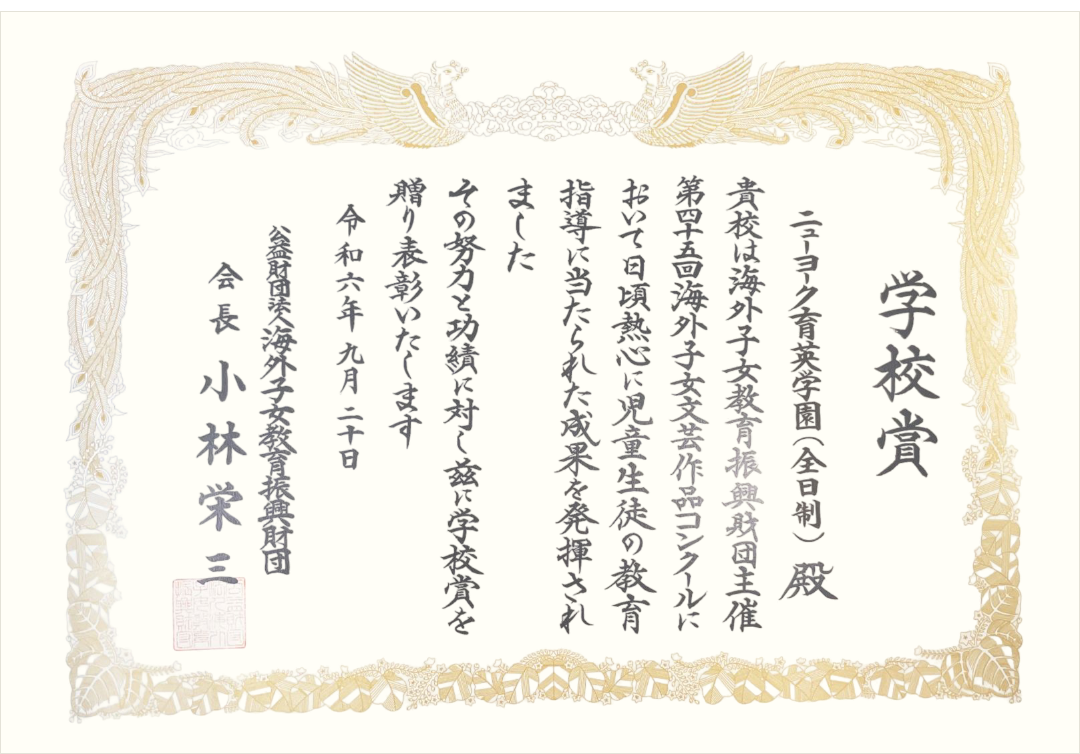 学校賞
ニューヨーク育英学園(全日制) 殿
貴校は海外子女教育振興財団主催
第四十五回海外子女文芸作品コンクールに
おいて日頃熱心に児童生徒の教育
指導に当たられた成果を発揮され
ました
その努力と功績に対し茲に学校賞を
贈り表彰いたします
令和六年九月二十日
公益財団法人海外子女教育振興財団
会長 小林栄三